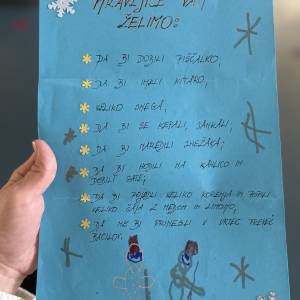 MRAVLJICE VAM
ŽELIMO:
DA BI DOBILI PIŠČALKO;
DA BI IMELI KITARO;
VELIKO SNEGA;
DA BI SE KEPALI, SANKALI;
DA BI NAREDILI SNEŽAKA;
DA BI HODILI NA KAHLICO IN
DOBILI GATE;
DA BI POJEDLI VELIKO KORENJA IN POPILI
VELIKO ČAJA Z MEDOM IN LIMONO;
DA NE BI PRINESLI V VRTEC PREVEČ
BACILOV.